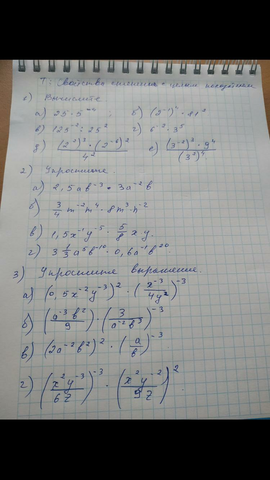 Т: Свойства степени с целым показателем
1) Вычислите
а) 25 · 5⁻⁴ б)
в) 125⁻² : 25² г) 6⁻³ · 3⁵
2) Упростите
а) 2,5ab⁻³ · 3a⁻²b
б) 3/4 m⁻²n⁴ · 8m³n⁻²
в) 1,5x⁻¹y⁻⁵ · 5/8 xy
г) 3 1/3 a⁵b⁻¹⁰ · 0,6a⁻¹b²⁰
3) Упростите выражение.
а) (0,5x⁻²y⁻³)² · (x⁻³/4y²)⁻³
б) (a⁻³b²/9) · (3/a⁻²b³)⁻³
в) (2a⁻²b²)² · (a/b)⁻³
г) (x²y⁻³/6z)⁻³ · (x²y⁻²/9z)²